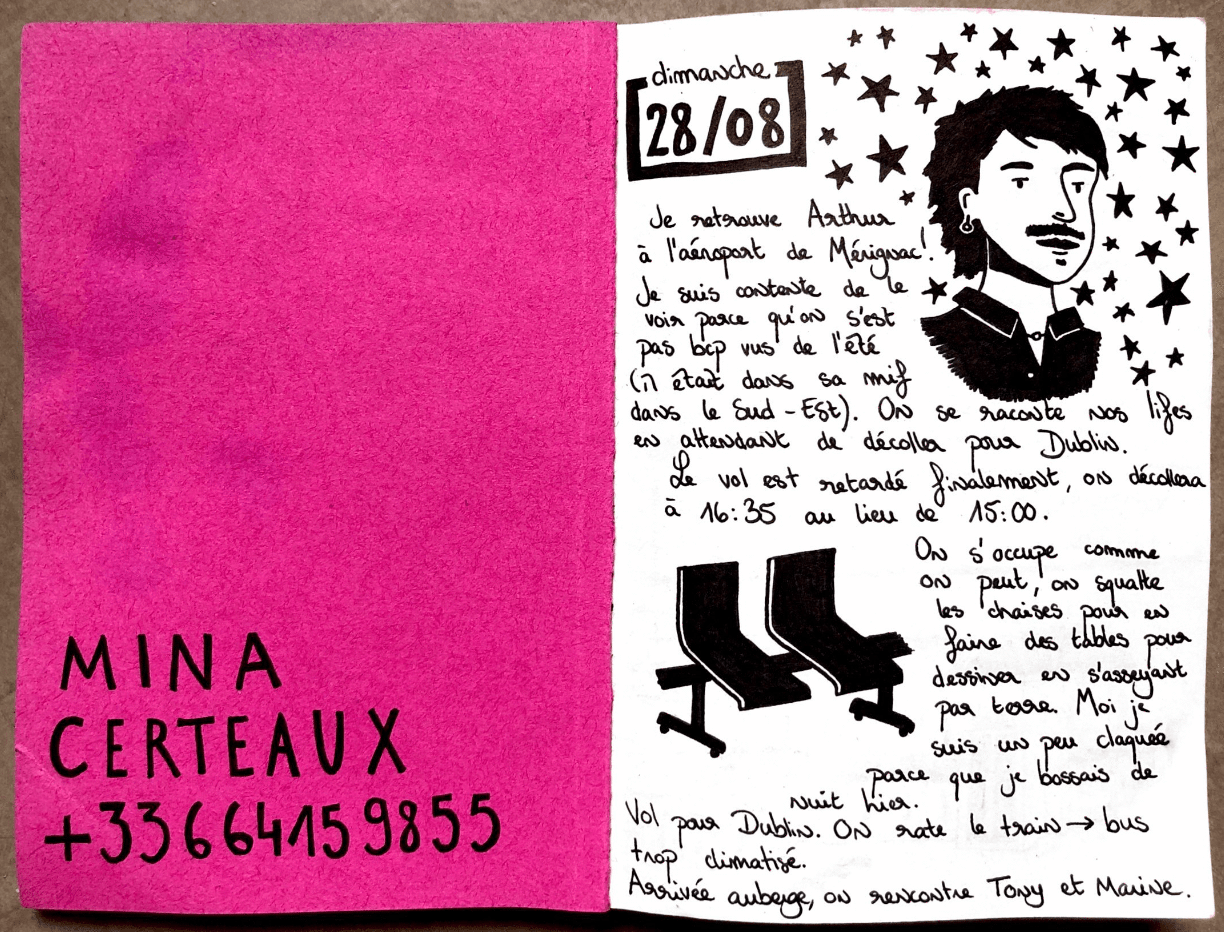 MINA
CERTEAUX
+33664159855
dimanche
28/08
Je retrouve Arthur
à l'aéroport de Mérignac!
Je suis contente de le
voir parce qu'on s'est
pas bcp vus de l'été
(il était dans sa mif
dans le Sud-Est). On se raconte nos lifes
en attendant de décoller pour Dublin.
Le vol est retardé finalement, on décollera
à 16:35 au lieu de 15:00.
On s'occupe comme
on peut, on squatte
les chaises pour en
faire des tables pour
dessiner en s'asseyant
par terre. Moi je
suis un peu claquée
parce que je bossais de
nuit hier.
Vol pour Dublin. On rate le train → bus
trop climatisé.
Arrivée auberge, on rencontre Tony et Marine.